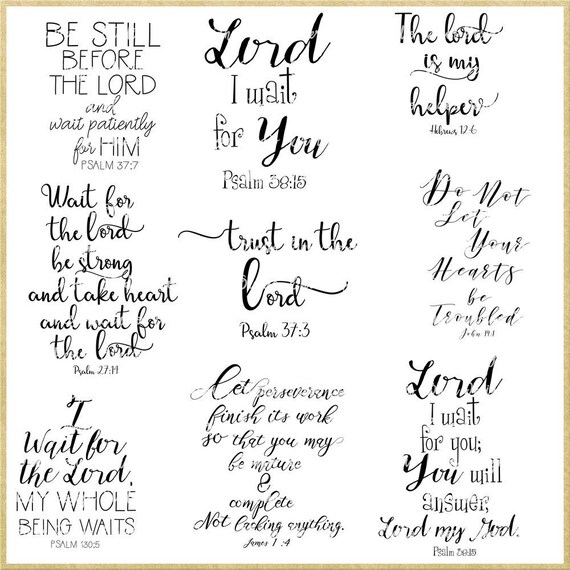 BE STILL
BEFORE
THE LORD
and
wait patiently
for HIM
PSALM 37:7
Lord
I wait
for You
Psalm 38:15
The lord
is my
helper
Hebrews 12:6
Wait for
the lord
be strong
and take heart
and wait for
the lord
Psalm 27:14
trust in the
Lord
Psalm 37:3
Do Not
Let
Your
Hearts
be
Troubled
John 14:1
I
Wait for
the Lord,
MY WHOLE
BEING WAITS
PSALM 130:5
Let perseverance
finish its work
so that you may
be mature
&
complete
Not lacking anything.
James 1:4
Lord
I wait
for you;
You will
answer,
Lord my God.
Psalm 38:15